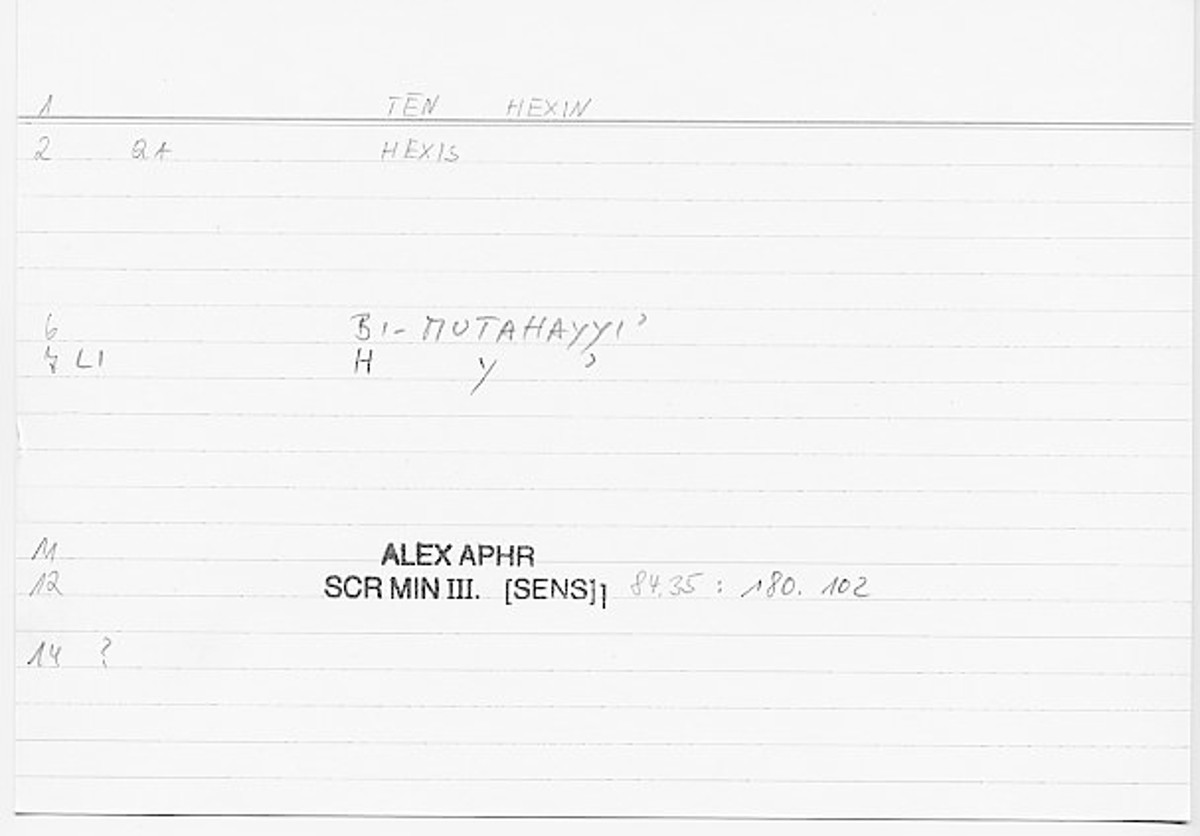 1 TĒN HEXIN
2 QA HEXIS
6 BI-MUTAHAYYI'
7 LI H Y '
11 ALEX APHR
12 SCR MIN III. [SENS]1 84.35 : 180. 102
14 ?